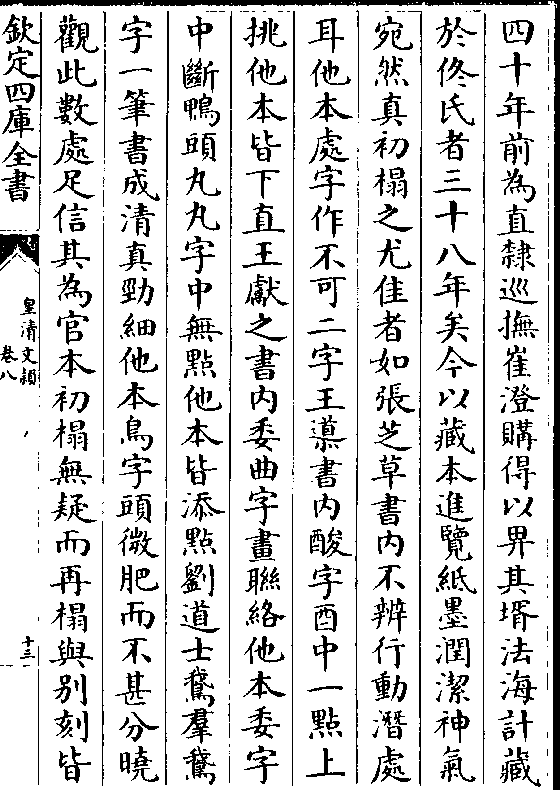 四十年前為直隸巡撫崔澄購得以畀其壻法海計藏
於佟氏者三十八年矣今以藏本進覽紙墨潤潔神氣
宛然真初榻之尤佳者如張芝草書内不辨行動潛處
耳他本處字作不可二字王導書内酸字酉中一點上
挑他本皆下直王獻之書内委曲字畫聯絡他本委字
中斷鴨頭丸丸字中無點他本皆添點劉道士鵞羣鵞
字一筆書成清真勁細他本鳥字頭微肥而不甚分曉
觀此數處足信其為官本初榻無疑而再榻與别刻皆
欽定四庫全書
皇清文穎
卷八
十三